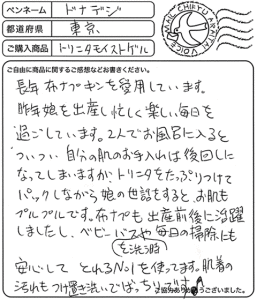 ペンネーム ドナデジ
都道府県 東京、
ご購入商品 トリニタモイストゲル
MAIL CHIKYU ARAITAI VOICE
ご自由に商品に関するご感想などお書きください。
長年布ナプキンを愛用しています。
昨年娘を出産し忙しく楽しい毎日を
過ごしています。2人でお風呂に入ると
ついつい自分の肌のお手入れは後回しに
なってしまいますが、トリニタをたっぷりつけて
パックしながら娘の世話をすると、お肌も
プルプルです。布ナプも出産前後に活躍
しましたし、ベビーバスや毎日の掃除にも
を洗う時
安心して とれるNo.1を使ってます。肌着の
汚れもつけ置き洗いでばっちりです。
ご協力ありがとうございました。